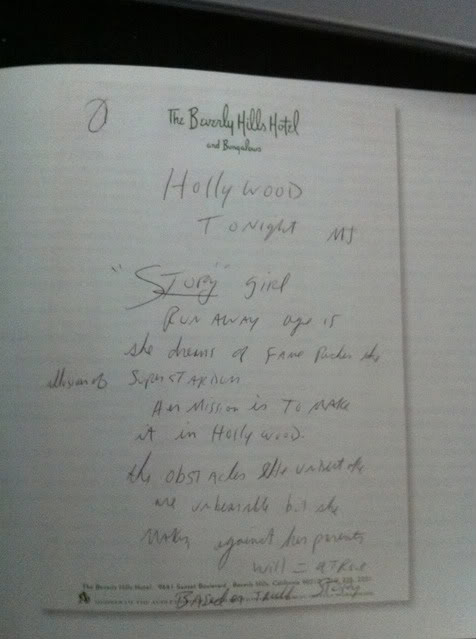 The Beverly Hills Hotel
and Bungalows
Hollywood
Tonight MJ
"Story" girl
Run away age 15
she dreams of fame the
illusion of Superstardum
Her mission is to make
it in Hollywood.
the obstacles she
are unbearable but she
makes against her parents
will = a true
Story
The Beverly Hills Hotel 9641 Sunset Boulevard, Beverly Hills, California
Based on Truth